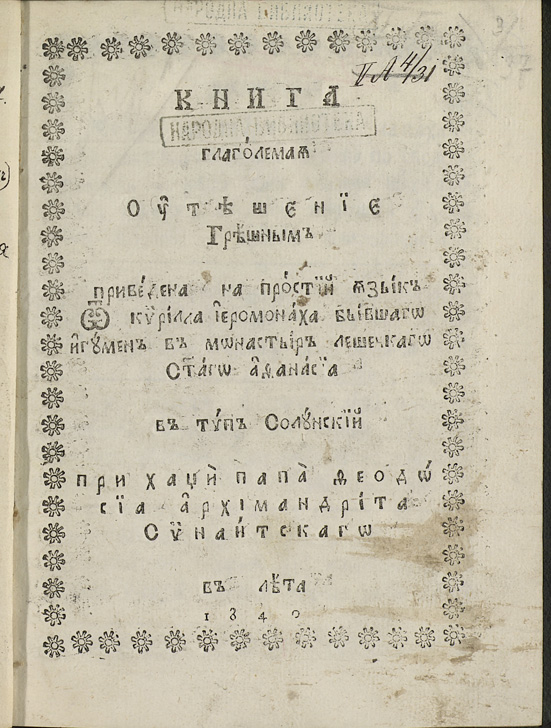 НАРОДНА БИБЛИОТЕКА
IV A 4/31
КНИГА
НАРОДНА БИБЛИОТЕКА
глаго́лемаѧ
Оу҆тѣшенїе
Грѣшнымъ
приве́дена на про́стїй ѧзы́къ
Ѿ кѷрілла і҆еромона́ха бы́вшагѡ
и҆гꙋ́менъ въ мѡнасты́ръ лешечкагѡ
Ст҃а́гѡ а҆ѳана́сїа
въ тѵ́пъ Солꙋ́нскїй
при хаџѝ папа̀ Ѳеодѡ́
сїа а҆рхїмандрі́та
Сѷнаи́тскагѡ
въ лѣ́та
1840